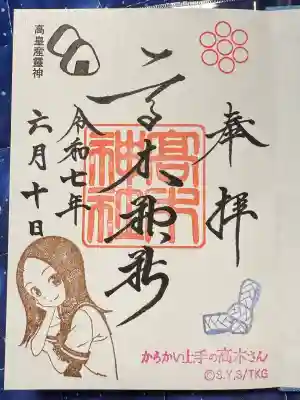 奉拝
高木神社
高木
神社
令和七年
六月十日
高皇産靈神
からかい上手の高木さん
©S.Y,S/TKG